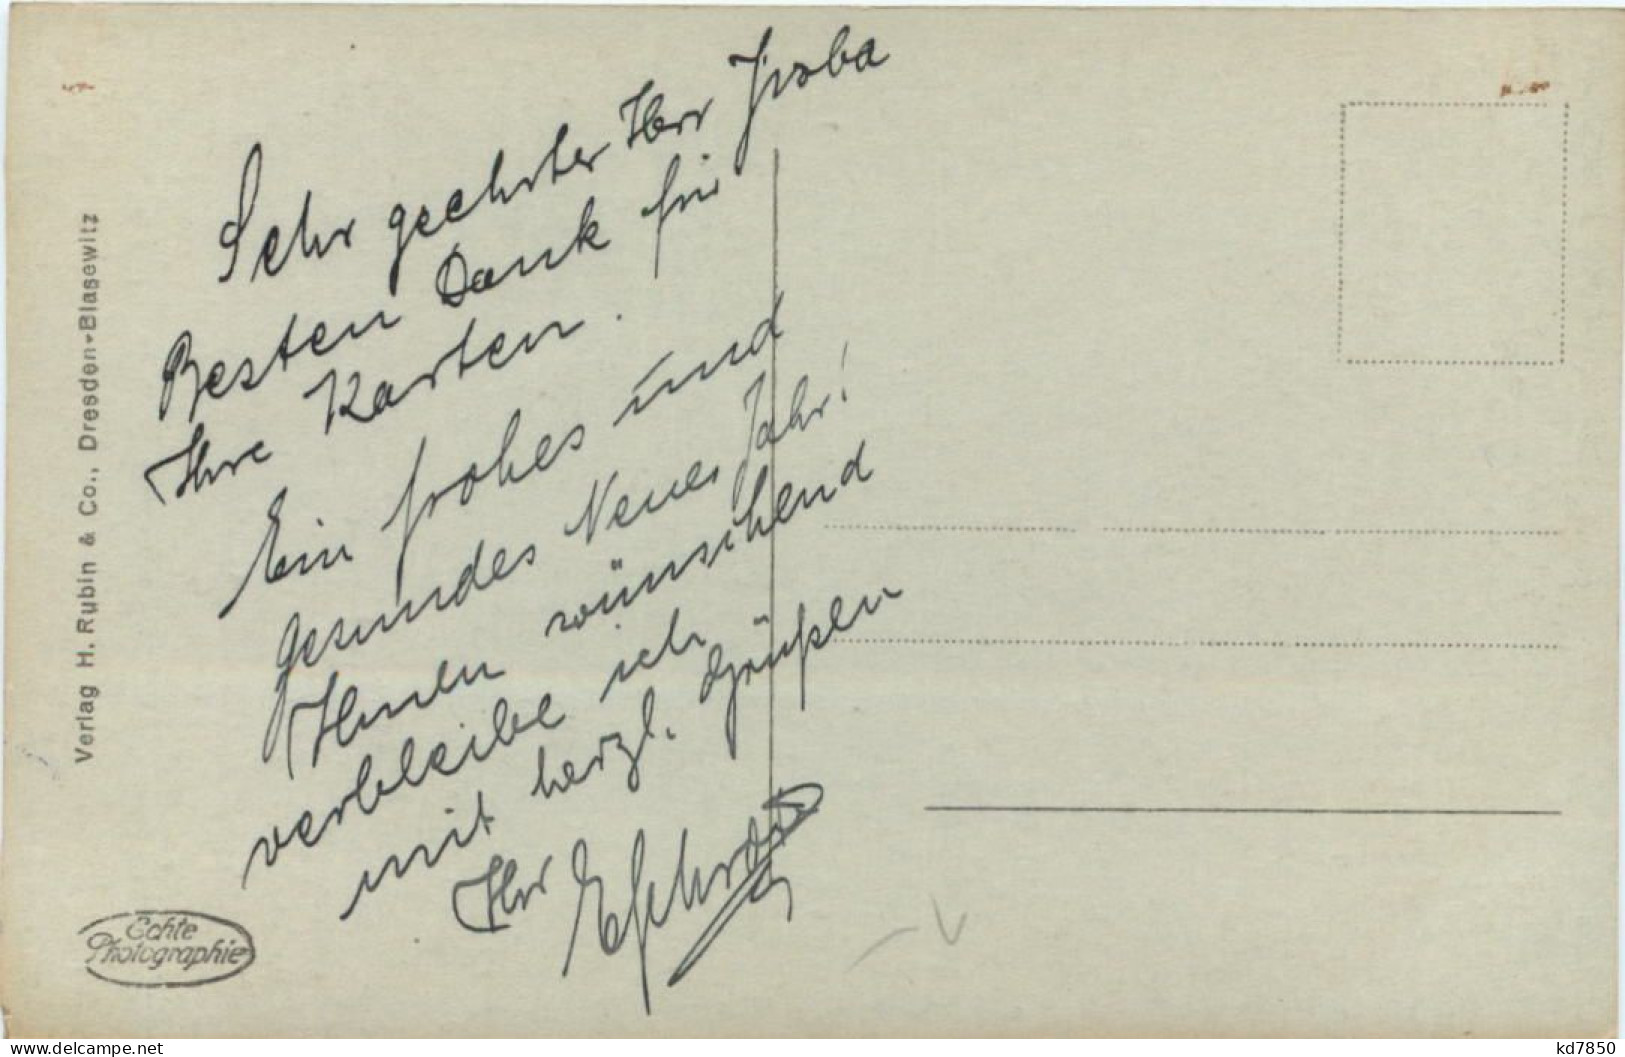 Sehr geehrter Herr
Besten Dank für
Ihre Karten.
Ein frohes und
gesundes Neues Jahr!
Ihnen wünschend
verbleibe ich
mit herzl. Grüßen
Ihr
Verlag H. Rubin & Co., Dresden-Blasewitz
Echte
Photographie
www.delcampe.net
kd7850